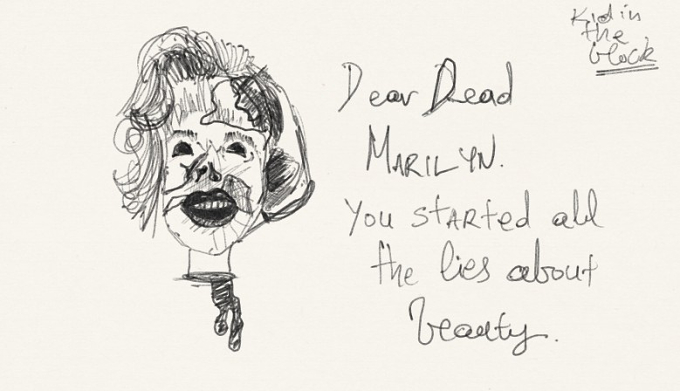 Kid in
the
block
Dear Dead
MARILYN.
You stARted all
the lies about
beauty.